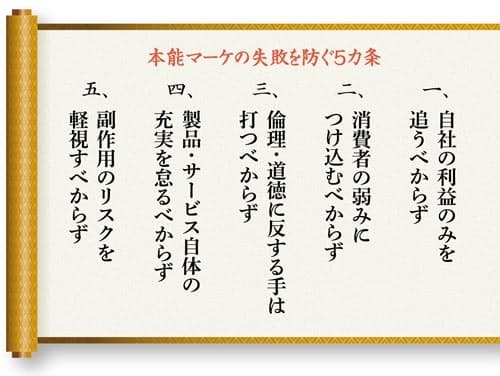 本能マーケの失敗を防ぐ5カ条
一、
自社の利益のみを
追うべからず
二、
消費者の弱みに
つけ込むべからず
三、
倫理・道徳に反する手は
打つべからず
四、
製品・サービス自体の
充実を怠るべからず
五、
副作用のリスクを
軽視すべからず